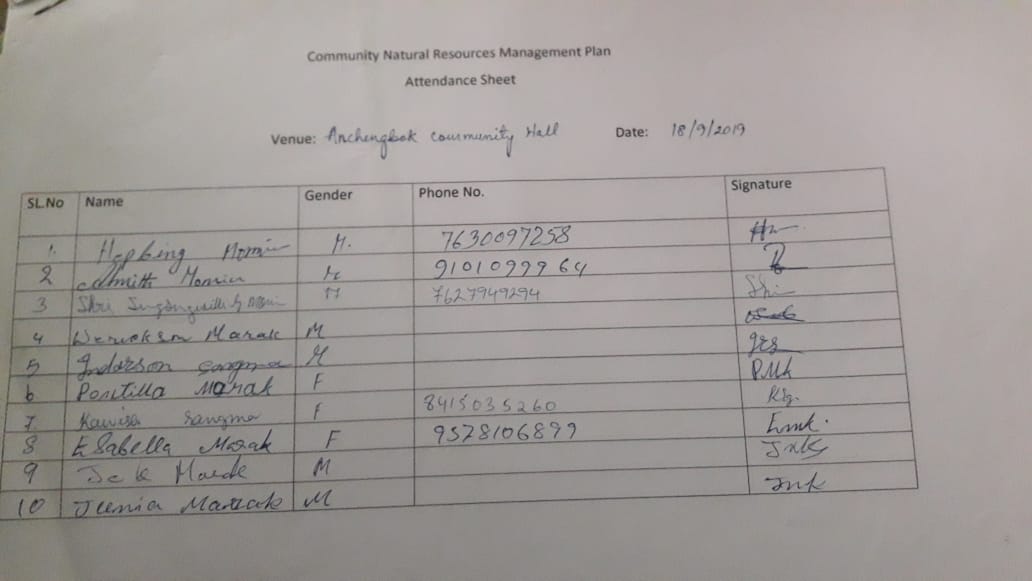 Community Natural Resources Management Plan
Attendance Sheet
Venue: Anchengbok community Hall Date: 18/9/2019
SL.No Name Gender Phone No. Signature
1. Hepbing Momin M. 7630097258
2 Momin M 9101099964
3 Shri M 7627949294 Shi
4 Marak M
5 Inderson Sangma M
6 Pontilla Marak F PMk
7. Kawisa Sangma F 8415035260
8 ESabella Marak F 9578106899 Emk.
9 Jek Marak M
10 Jeenia Marak M Jmk